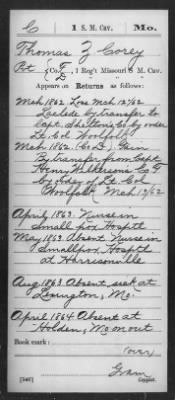 C 1 S. M. Cav. Mo.
Thomas Z Corey
Pvt (Co. F, 1 Reg't Missouri S. M. Cav.
Appears on Returns as follows:
Mch 1862 Loss Mch 12/62
by transfer to
Capt Shelton's Co by order
Lt. Col Woolfolk
Mch 1862 (Co F) Gain
By transfer from Capt
Henry Wilkersons Co F
by order of Lt. Col.
Woolfolk Mch 12/62
April 1863 Nurse in
Small pox Hosptl
May 1863 Absent Nurse in
Smallpox Hosptl
at Harrisonville
Aug 1863 Absent, sick at
Lexington, Mo.
April 1864 Absent at
Holden, Mo
Book mark:
(over)
Copyist.